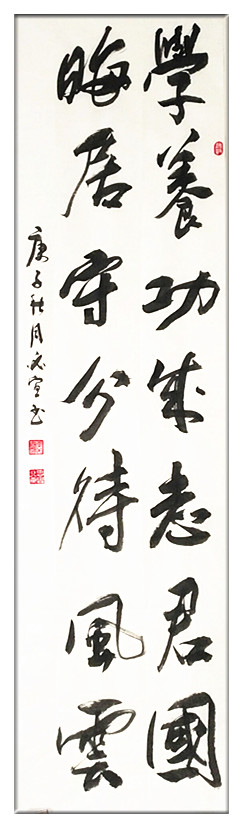 學養功成志君國
晦居守分待風雲
庚子秋月宣书